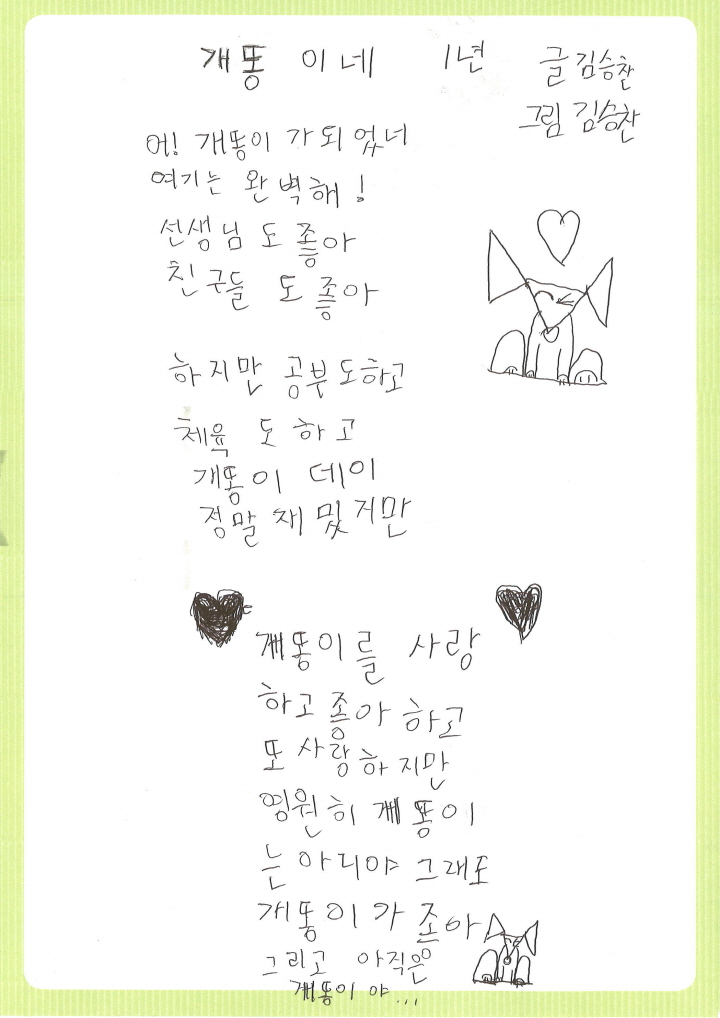 개똥이네 1년 글 김승찬
그림 김승찬
어! 개똥이가 되었너
여기는 완벽해!
선생님도 죻아
친구들도 죻아
하지만 공부도하고
체육도하고
개똥이 데이
정말 채밌거만
개똥이를 사랑
하고 죻아하고
또 사랑하지만
영원히 개똥이
는 아니야 그래도
개똥이가 죤아
그리고 아직은
개똥이야...